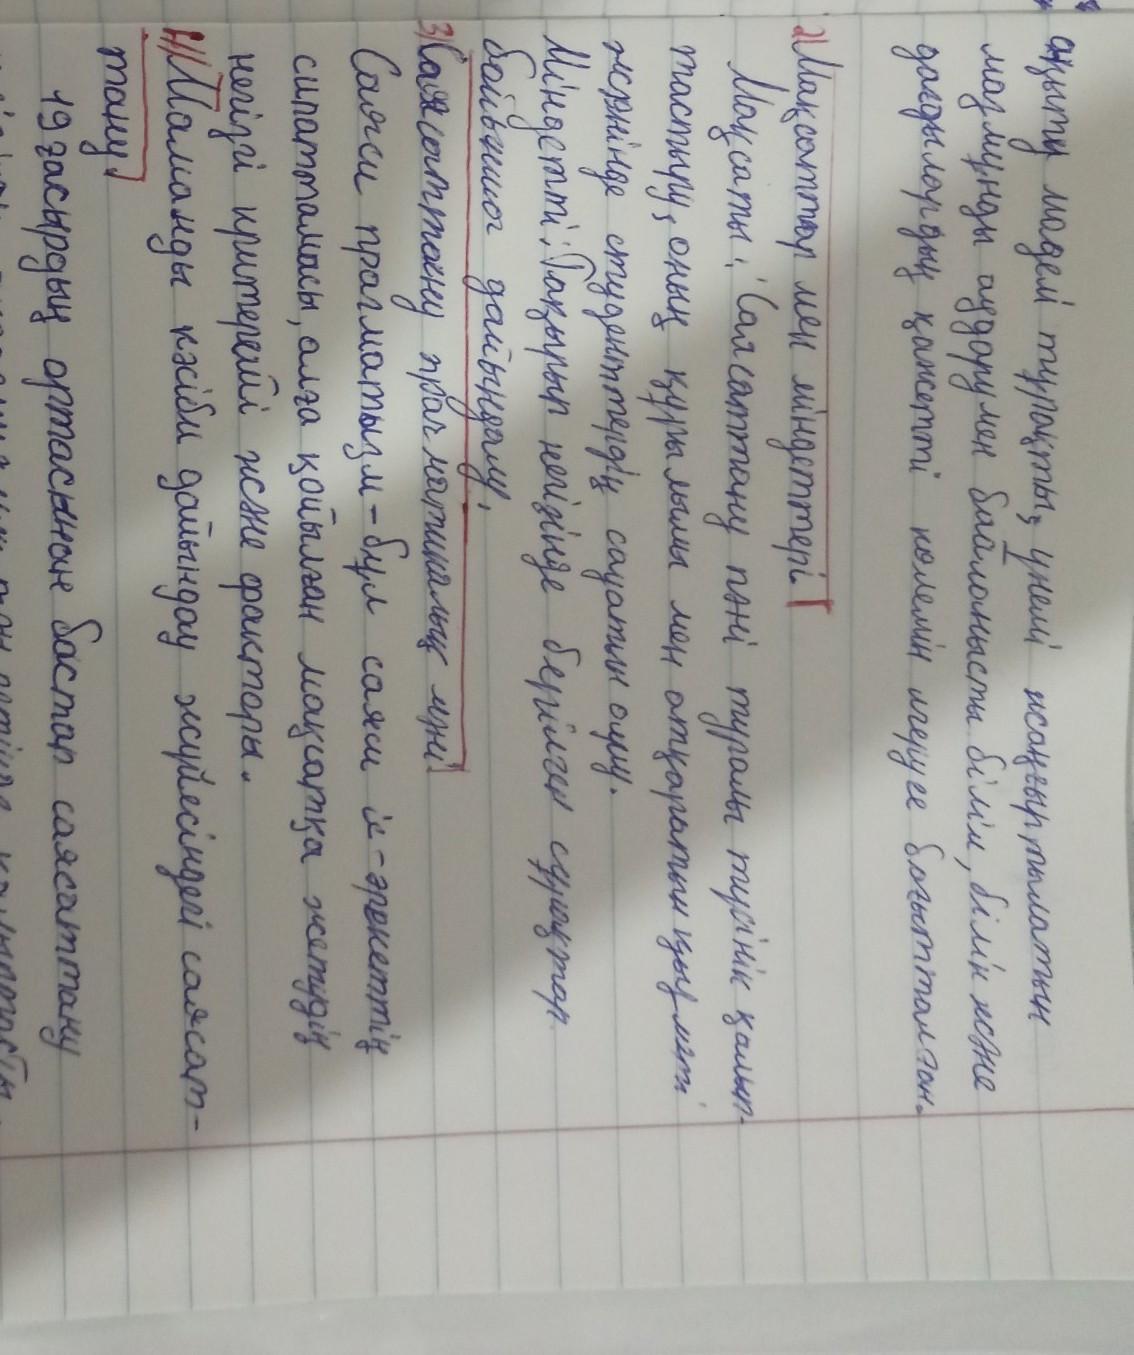 оқыту моделі тұрақты, үнемі жаңғыртылатын
мазмұнды аударумен байланысты білім, білік және
дағдылардың қажетті көлемін игеруге бағытталған.
2) Мақсаттар мен міндеттері
Мақсаты: Саясаттану пәні туралы түсінік қалып-
тастыру, оның құрылымы мен атқаратын қызметі
жөнінде студенттердің сауатын ашу.
Міндетті: Тақырып негізінде берілген сұрақтар
бойынша дайындалу,
3) Саясаттану прагматикалық мәні
Саяси прагматизм - бұл саяси іс-әрекеттің
сипаттамасы, алға қойылған мақсатқа жетудің
негізгі критерийі және факторы.
4) Маманды кәсіби дайындау жүйесіндегі саясат-
тану
19 ғасырдың ортасынан бастап саясаттану